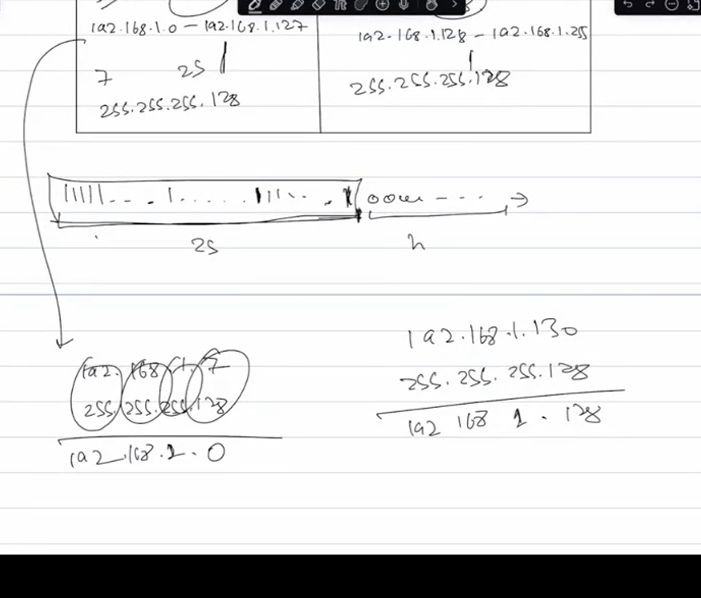 192.168.1.0 – 192.168.1.127
7 25
255.255.255.128
192.168.1.128 – 192.168.1.255
255.255.255.128
25
192.168.1.7
255.255.255.128
192.168.1.0
192.168.1.130
255.255.255.128
192 168 1.128